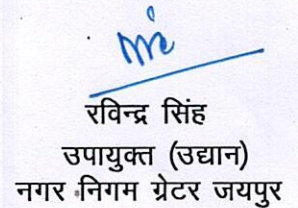 रविन्द्र सिंह
उपायुक्त (उद्यान)
नगर निगम ग्रेटर जयपुर